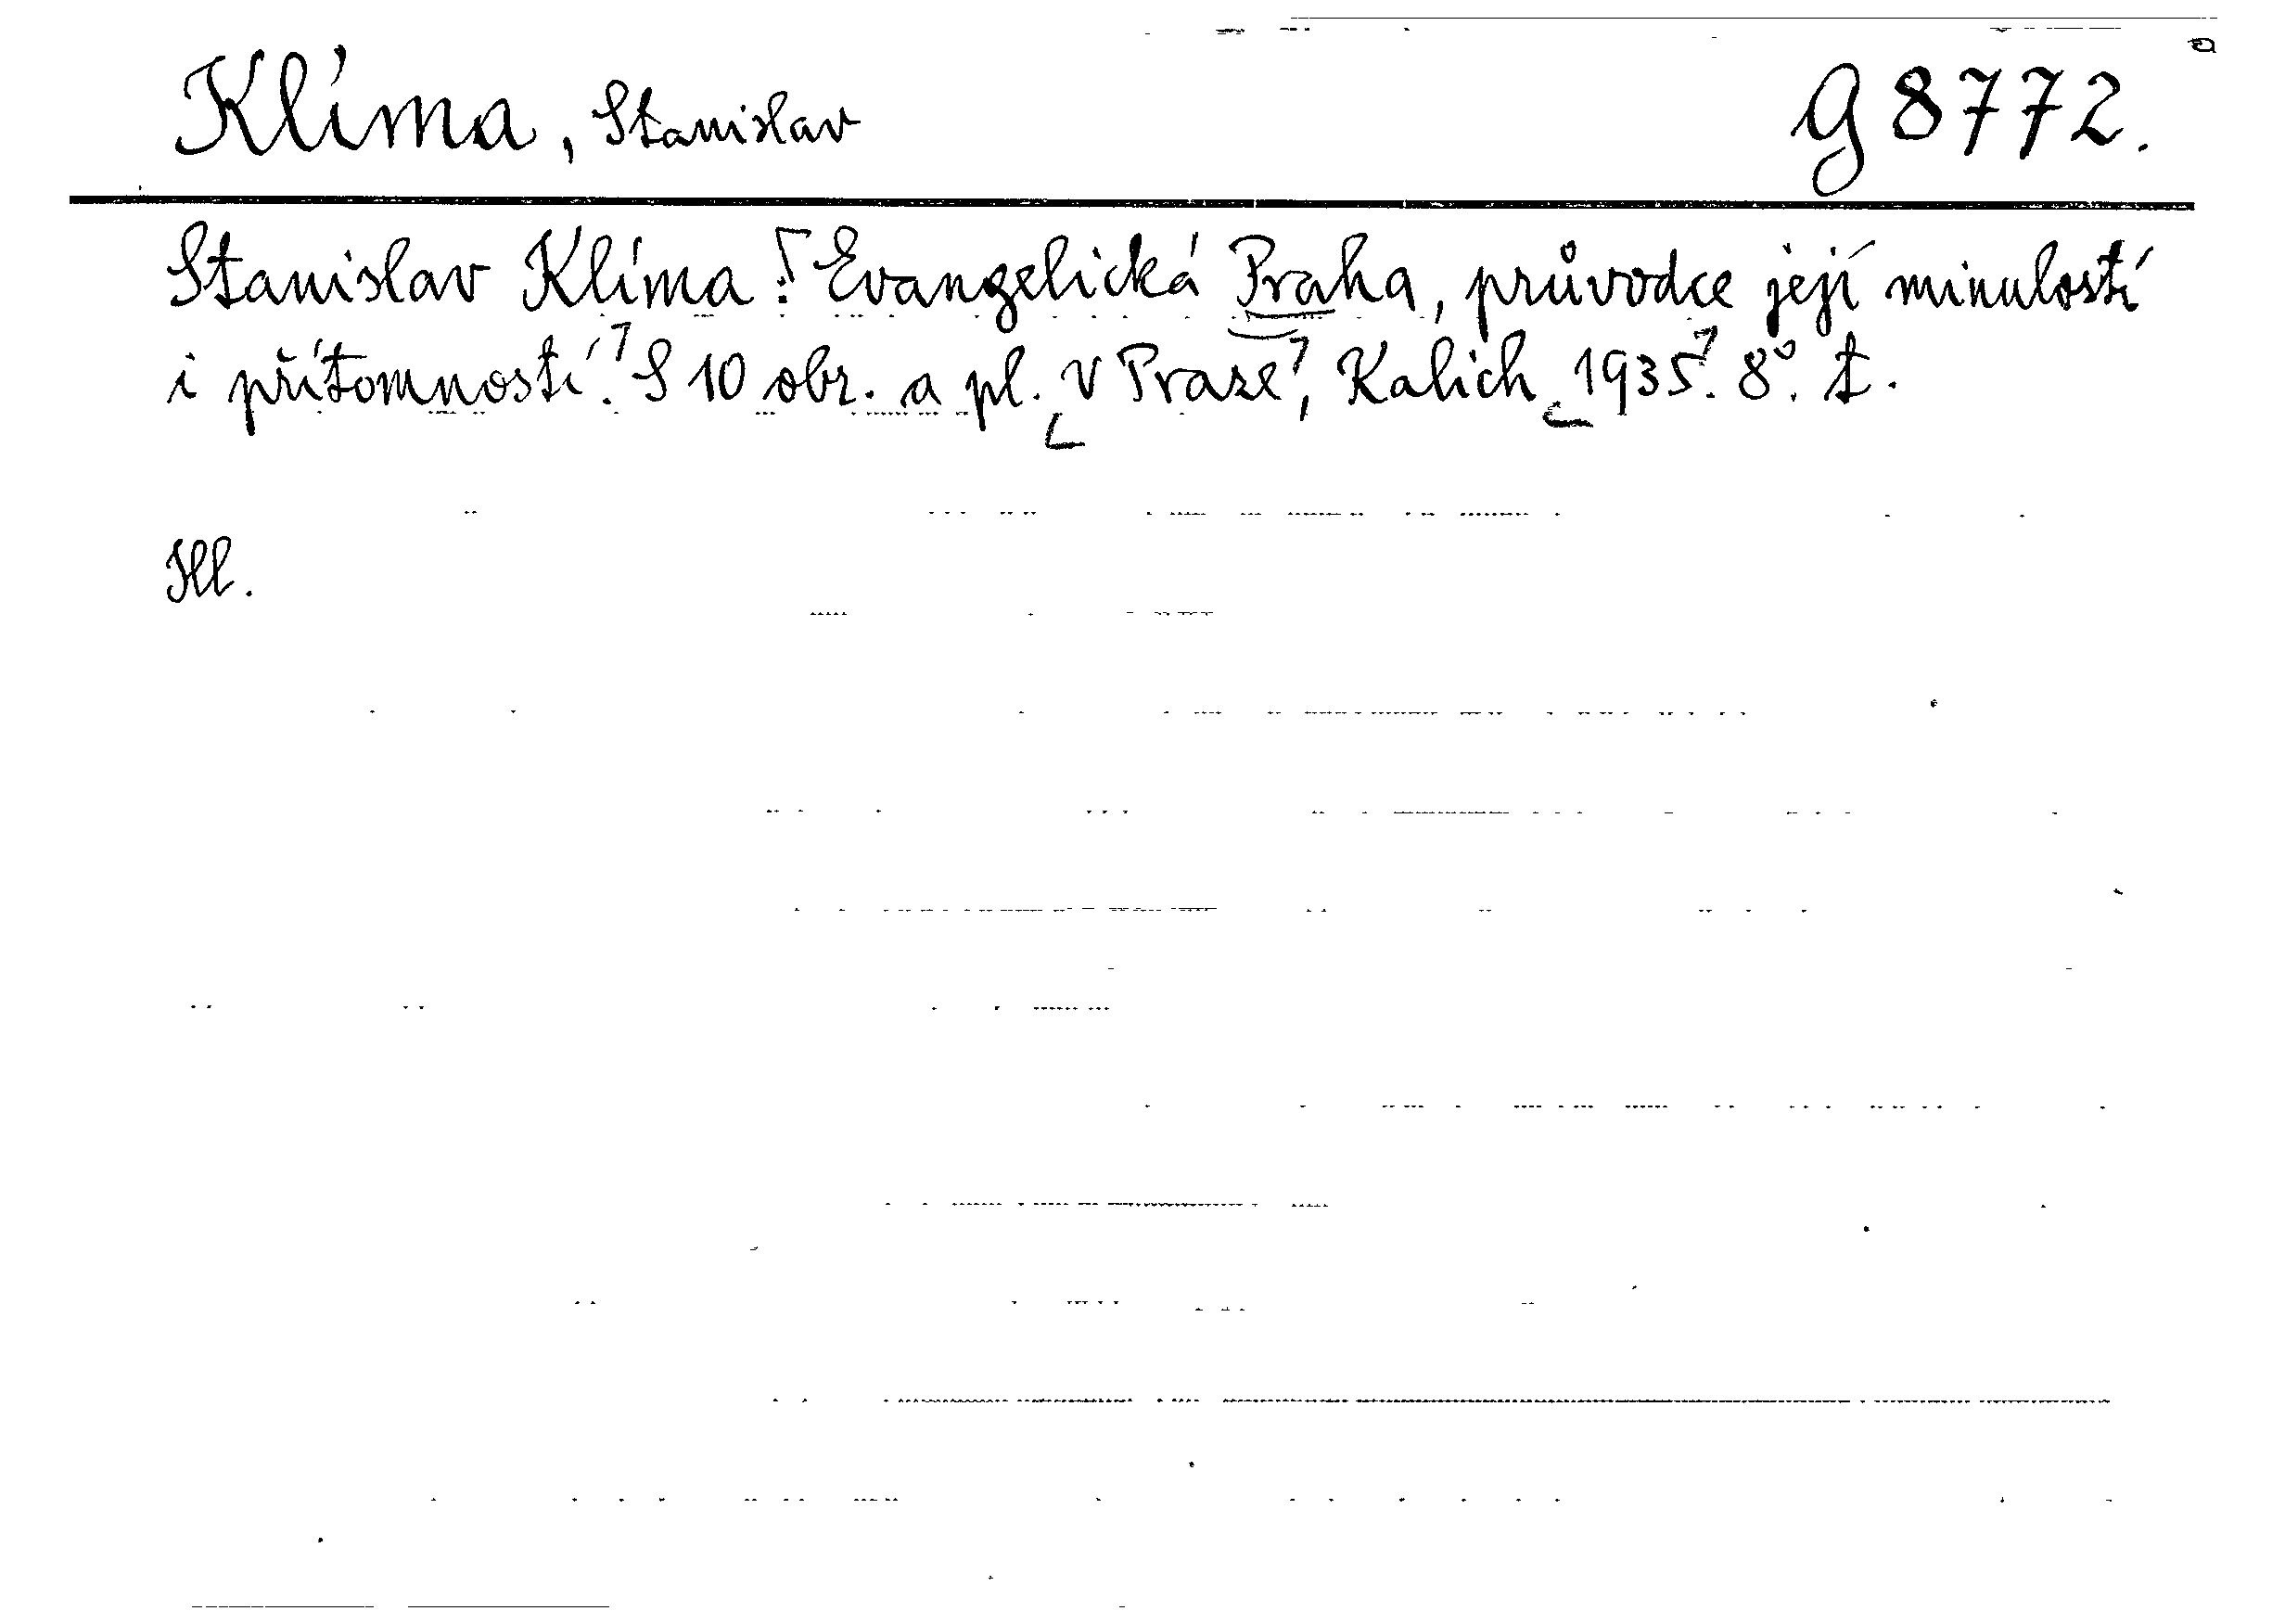 Klíma, Stanislav g 8772.
Stanislav Klíma: Evangelická Praha, průvodce její minulostí
i přítomností. S 10 obr. a pl. V Praze, Kalich 1935. 8°. t.
Hl.